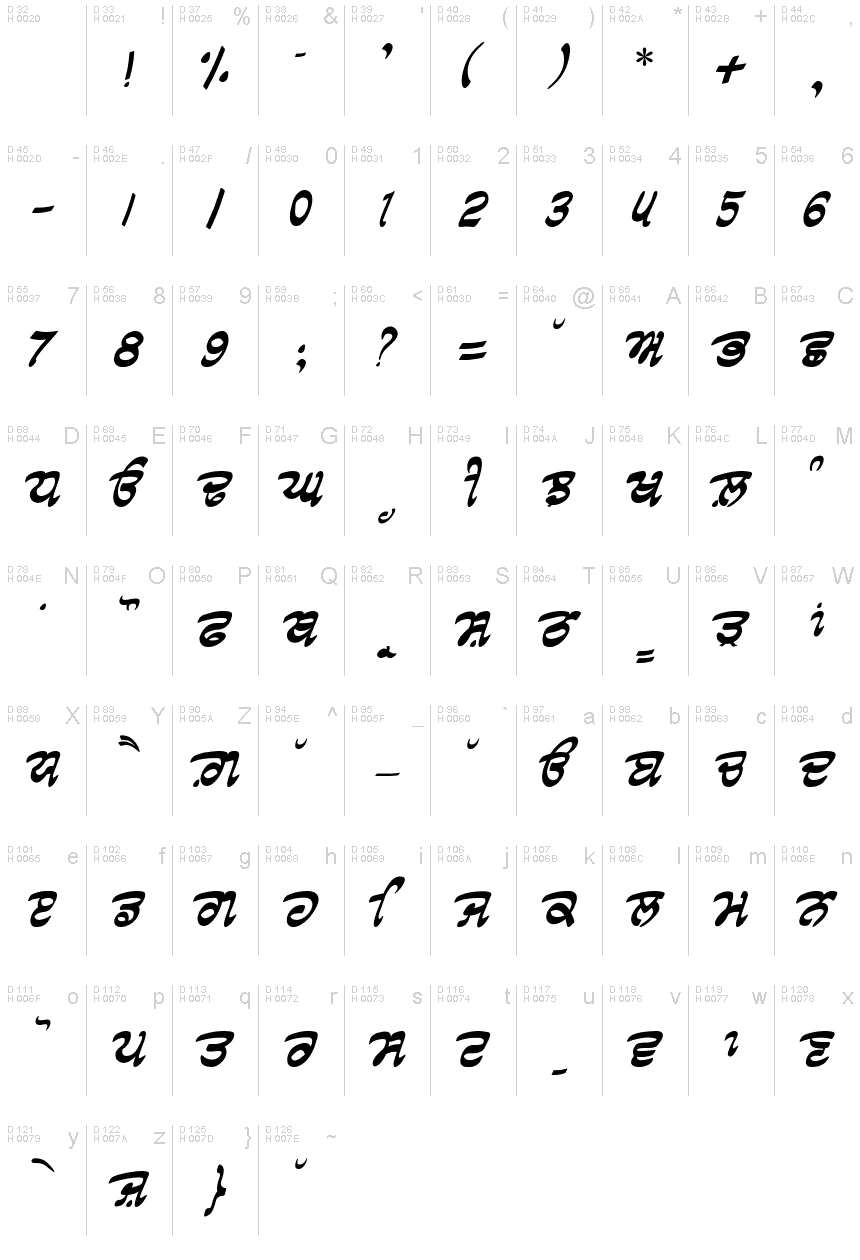 D 32 D 33 ! D 37 % D 38 & D 39 ' D 40 ( D 41 ) D 42 * D 43 + D 44 ,
H 0020 H 0021 H 0025 H 0026 H 0027 H 0028 H 0029 H 002A H 002B H 002C
! % - ' ( ) * + ,
D 45 - D 46 . D 47 / D 48 0 D 49 1 D 50 2 D 51 3 D 52 4 D 53 5 D 54 6
H 002D H 002E H 002F H 0030 H 0031 H 0032 H 0033 H 0034 H 0035 H 0036
- । / 0 1 2 3 4 5 6
D 55 7 D 56 8 D 57 9 D 59 ; D 60 < D 61 = D 64 @ D 65 A D 66 B D 67 C
H 0037 H 0038 H 0039 H 003B H 003C H 003D H 0040 H 0041 H 0042 H 0043
7 8 9 ; ? = ੱ ਅ ਭ ਛ
D 68 D D 69 E D 70 F D 71 G D 72 H D 73 I D 74 J D 75 K D 76 L D 77 M
H 0044 H 0045 H 0046 H 0047 H 0048 H 0049 H 004A H 004B H 004C H 004D
ਧ ਓ ਢ ਘ ੍ਹ ੀ ਝ ਖ ਲ਼ ੰ
D 78 N D 79 O D 80 P D 81 Q D 82 R D 83 S D 84 T D 85 U D 86 V D 87 W
H 004E H 004F H 0050 H 0051 H 0052 H 0053 H 0054 H 0055 H 0056 H 0057
ਂ ੌ ਫ ਥ ੍ਰ ਸ਼ ਠ ੂ ੜ ਾਂ
D 88 X D 89 Y D 90 Z D 94 ^ D 95 _ D 96 ` D 97 a D 98 b D 99 c D 100 d
H 0058 H 0059 H 005A H 005E H 005F H 0060 H 0061 H 0062 H 0063 H 0064
ਯ ੈ ਗ਼ ੱ _ ੱ ੳ ਬ ਚ ਦ
D 101 e D 102 f D 103 g D 104 h D 105 i D 106 j D 107 k D 108 l D 109 m D 110 n
H 0065 H 0066 H 0067 H 0068 H 0069 H 006A H 006B H 006C H 006D H 006E
ੲ ਡ ਗ ਹ ਿ ਜ ਕ ਲ ਮ ਨ
D 111 o D 112 p D 113 q D 114 r D 115 s D 116 t D 117 u D 118 v D 119 w D 120 x
H 006F H 0070 H 0071 H 0072 H 0073 H 0074 H 0075 H 0076 H 0077 H 0078
ੋ ਪ ਤ ਰ ਸ ਟ ੁ ਵ ਾ ਣ
D 121 y D 122 z D 125 } D 126 ~
H 0079 H 007A H 007D H 007E
ੇ ਜ਼ } ੱ